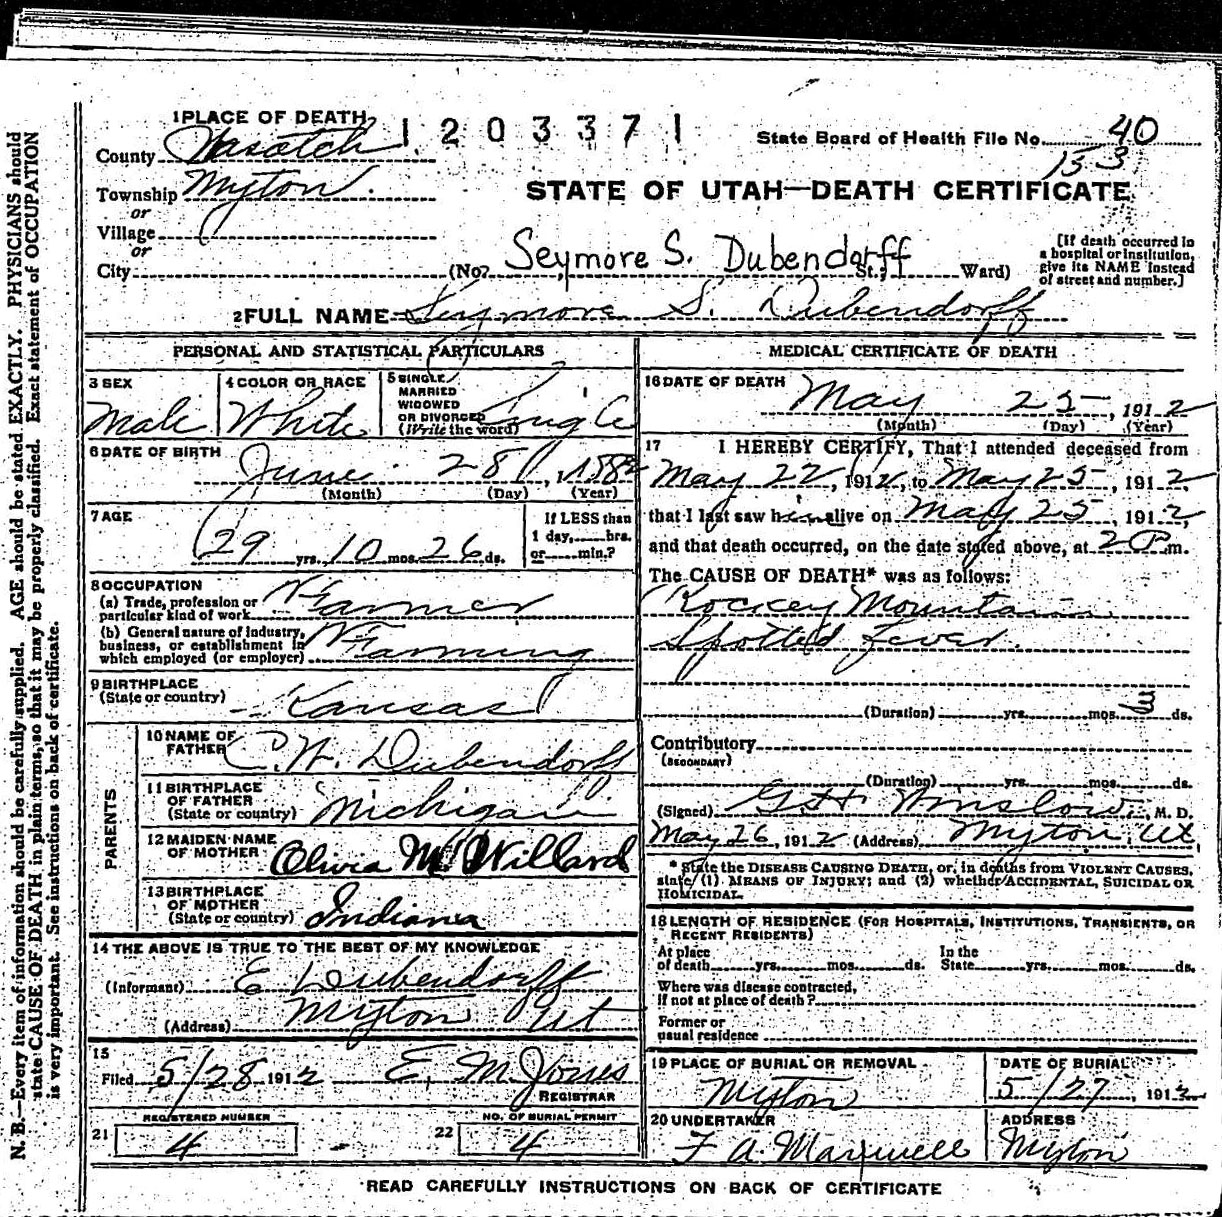 1 PLACE OF DEATH
1203371
State Board of Health File No. 40
County Wasatch
153
Township Myton.
STATE OF UTAH—DEATH CERTIFICATE
or
Village
or
City (No. St., Ward)
Seymore S. Dubendorff
[If death occurred in
a hospital or institution,
give its NAME instead
of street and number.]
2 FULL NAME Seymore S. Dubendorff
PERSONAL AND STATISTICAL PARTICULARS
3 SEX
Male
4 COLOR OR RACE
White
5 SINGLE
MARRIED
WIDOWED
OR DIVORCED
(Write the word)
Single
6 DATE OF BIRTH
June 28, 1882
(Month) (Day) (Year)
7 AGE
29 yrs. 10 mos. 26 ds.
If LESS than
1 day, hrs.
or min.?
8 OCCUPATION
(a) Trade, profession or
particular kind of work Farmer
(b) General nature of industry,
business, or establishment in
which employed (or employer) Farming
9 BIRTHPLACE
(State or country) Kansas
PARENTS
10 NAME OF
FATHER C. W. Dubendorff
11 BIRTHPLACE
OF FATHER
(State or country) Michigan
12 MAIDEN NAME
OF MOTHER Olivia M Willard
13 BIRTHPLACE
OF MOTHER
(State or country) Indiana
14 THE ABOVE IS TRUE TO THE BEST OF MY KNOWLEDGE
(Informant) E Dubendorff
(Address) Myton Ut
15
Filed 5/28 1912 E. M. Jones
REGISTRAR
REGISTERED NUMBER
21 4
NO. OF BURIAL PERMIT
22 4
MEDICAL CERTIFICATE OF DEATH
16 DATE OF DEATH
May 25, 1912
(Month) (Day) (Year)
17 I HEREBY CERTIFY, That I attended deceased from
May 22, 1912, to May 25, 1912,
that I last saw him alive on May 25, 1912,
and that death occurred, on the date stated above, at 2 P m.
The CAUSE OF DEATH* was as follows:
Rockey Mountain
Spotted Fever.
(Duration) yrs. mos. 3 ds.
Contributory
(SECONDARY)
(Duration) yrs. mos. ds.
(Signed) Winslow, M. D.
May 26, 1912 (Address) Myton, Ut
* State the DISEASE CAUSING DEATH, or, in deaths from VIOLENT CAUSES,
state (1) MEANS OF INJURY; and (2) whether ACCIDENTAL, SUICIDAL OR
HOMICIDAL.
18 LENGTH OF RESIDENCE (FOR HOSPITALS, INSTITUTIONS, TRANSIENTS, OR
RECENT RESIDENTS)
At place
of death yrs. mos. ds.
In the
State yrs. mos. ds.
Where was disease contracted,
if not at place of death?
Former or
usual residence
19 PLACE OF BURIAL OR REMOVAL
Myton
DATE OF BURIAL
5/27, 1912
20 UNDERTAKER
F A. Maxwell
ADDRESS
Myton
READ CAREFULLY INSTRUCTIONS ON BACK OF CERTIFICATE
N. B.—Every item of information should be carefully supplied. AGE should be stated EXACTLY. PHYSICIANS should
state CAUSE OF DEATH in plain terms, so that it may be properly classified. Exact statement of OCCUPATION
is very important. See instructions on back of certificate.